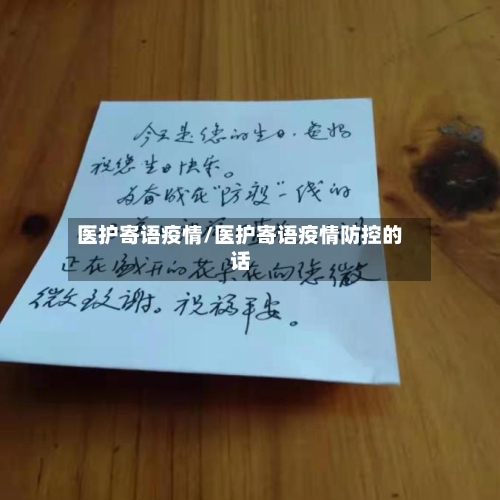 今天是您的生日，爸妈
祝您生日快乐。
为奋战在“防疫”一线的
医护寄语疫情/医护寄语疫情防控的
话
正在盛开的花朵在向您微
微致谢。祝福平安。